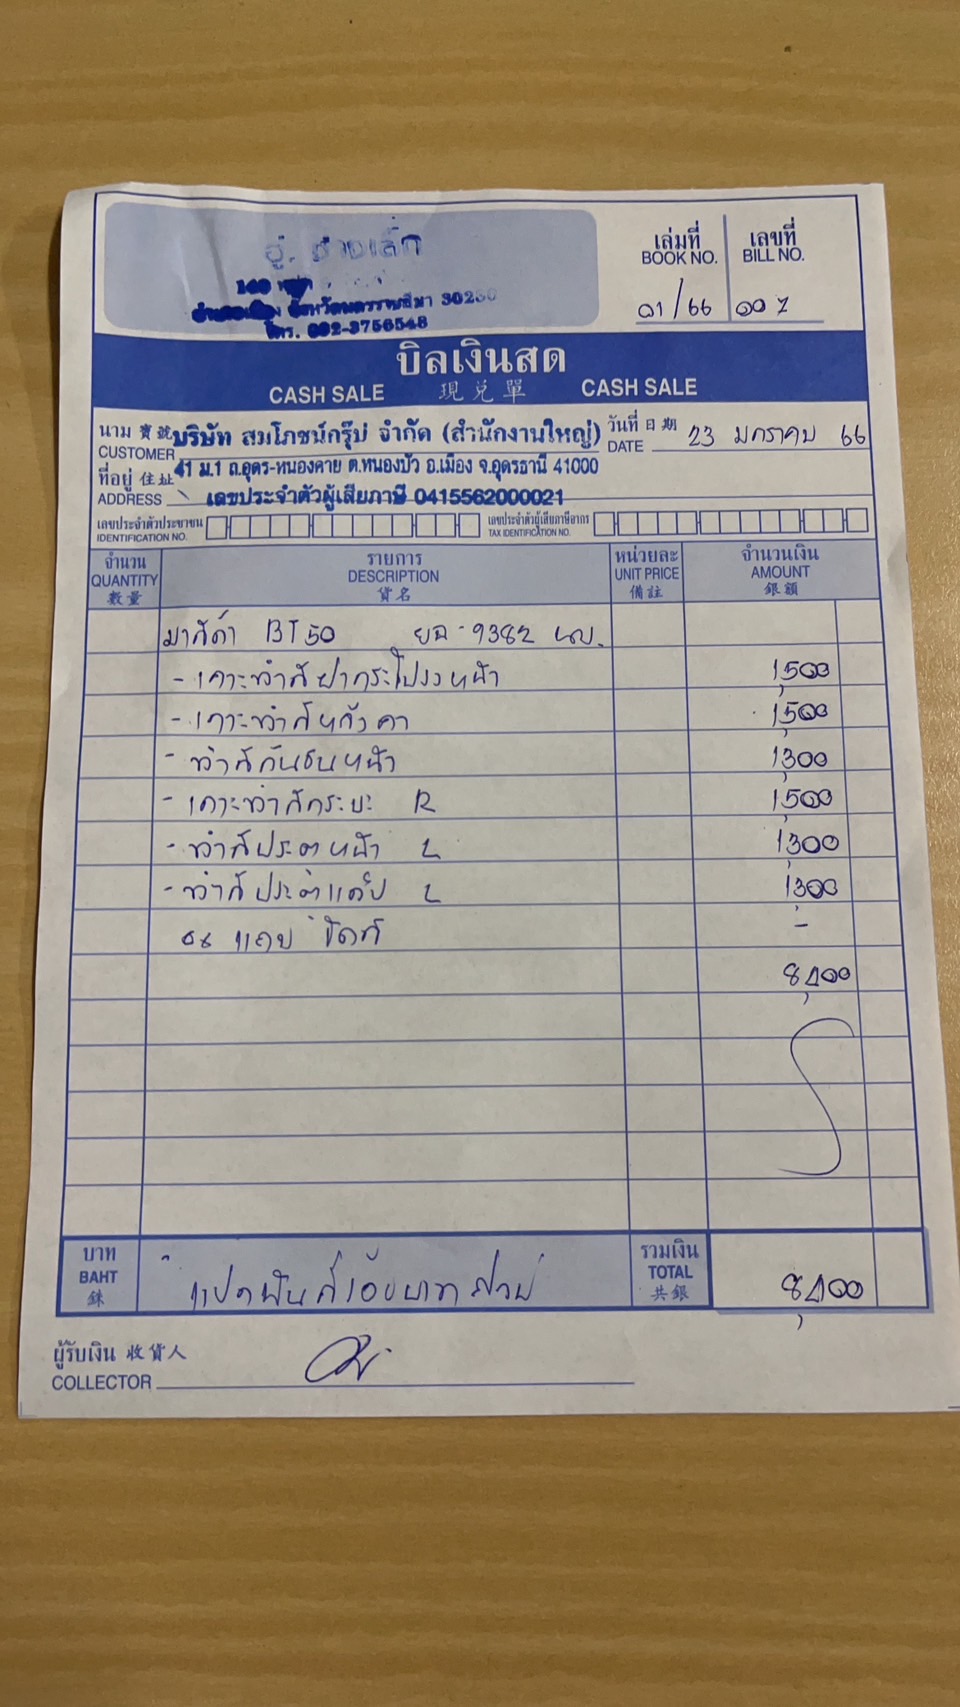 อู่. ช่างเล็ก
160
อำเภอเมือง จังหวัดนครราชสีมา 30280
โทร. 092-3756548
เล่มที่ เลขที่
BOOK NO. BILL NO.
01/66 007
บิลเงินสด
CASH SALE 現兑單 CASH SALE
นาม 寶號 บริษัท สมโภชน์กรุ๊ป จำกัด (สำนักงานใหญ่) วันที่ 日期 23 มกราคม 66
CUSTOMER DATE
ที่อยู่ 住址 41 ม.1 ถ.อุดร-หนองคาย ต.หนองบัว อ.เมือง จ.อุดรธานี 41000
ADDRESS เลขประจำตัวผู้เสียภาษี 0415562000021
เลขประจำตัวประชาชน เลขประจำตัวผู้เสียภาษีอากร
IDENTIFICATION NO. TAX IDENTIFICATION NO.
จำนวน รายการ หน่วยละ จำนวนเงิน
QUANTITY DESCRIPTION UNIT PRICE AMOUNT
數量 貨名 備註 銀額
มาสด้า BT50 ยฉ-9382 นม.
- เคาะทำสีฝากระโปรงหน้า 1,500
- เคาะทำสีหลังคา 1,500
- ทำสีกันชนหน้า 1,300
- เคาะทำสีกระบะ R 1,500
- ทำสีประตูหน้า L 1,300
- ทำสีประตูแค็ป L 1,300
แถม -
8,400
บาท แปดพันสี่ร้อยบาทถ้วน รวมเงิน
BAHT TOTAL 8,400
銖 共銀
ผู้รับเงิน 收貨人
COLLECTOR